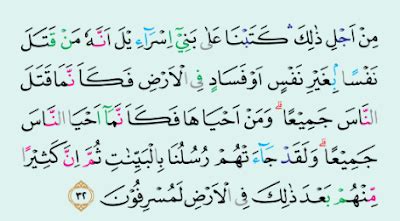 مِنْ اَجْلِ ذٰلِكَ ۛ كَتَبْنَا عَلٰى بَنِيْٓ اِسْرَاۤءِيْلَ اَنَّهٗ مَنْ قَتَلَ
نَفْسًا بِغَيْرِ نَفْسٍ اَوْ فَسَادٍ فِى الْاَرْضِ فَكَاَنَّمَا قَتَلَ
النَّاسَ جَمِيْعًا ۗ وَمَنْ اَحْيَاهَا فَكَاَنَّمَآ اَحْيَا النَّاسَ
جَمِيْعًا ۗ وَلَقَدْ جَاۤءَتْهُمْ رُسُلُنَا بِالْبَيِّنٰتِ ثُمَّ اِنَّ كَثِيْرًا
مِّنْهُمْ بَعْدَ ذٰلِكَ فِى الْاَرْضِ لَمُسْرِفُوْنَ ٣٢